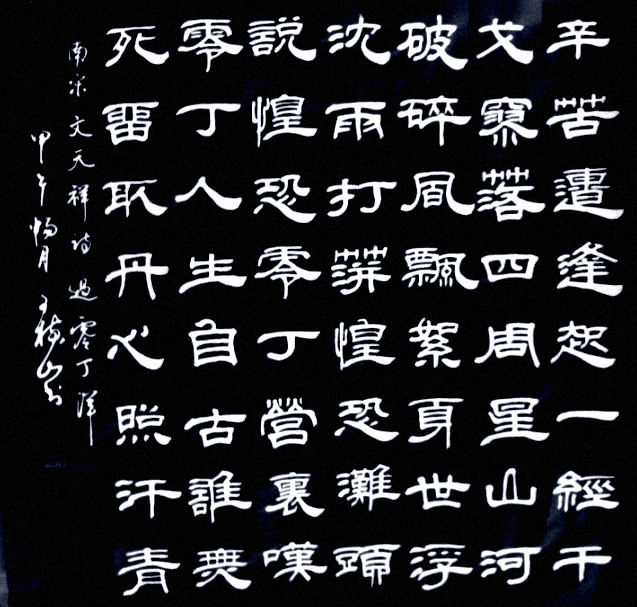 辛苦遭逢起一經干
戈寥落四周星山河
破碎風飄絮身世浮
沈雨打萍惶恐灘頭
說惶恐零丁營裏嘆
零丁人生自古誰無
死留取丹心照汗青
南宋文天祥詩過零丁洋
甲午暢月